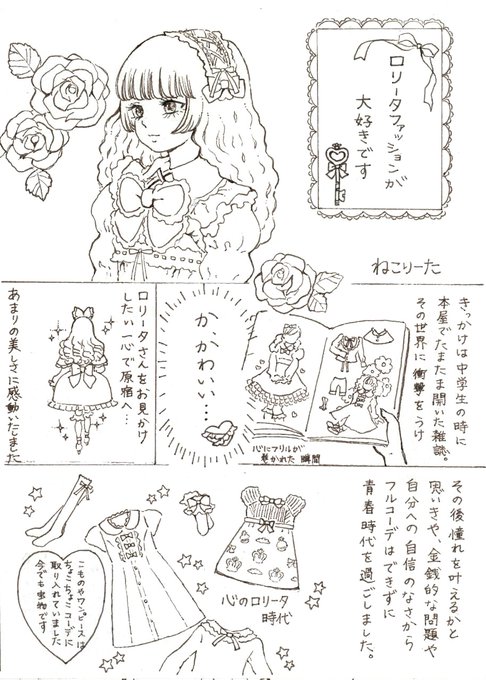 ロリータファッションが
大好きです
ねこりーた
きっかけは中学生の時に
本屋でたまたま開いた雑誌。
その世界に衝撃をうけ
心にフリルが
巻かれた瞬間
か、かわいい…
ロリータさんをお見かけ
したい一心で原宿へ…
あまりの美しさに感動いたしました
その後憧れを叶えるかと
思いきや、金銭的な問題や
自分への自信のなさから
フルコーデはできずに
青春時代を過ごしました。
心のロリータ
時代
こものやワンピースは
ちょこちょこコーデに
取り入れていました
今でも宝物です